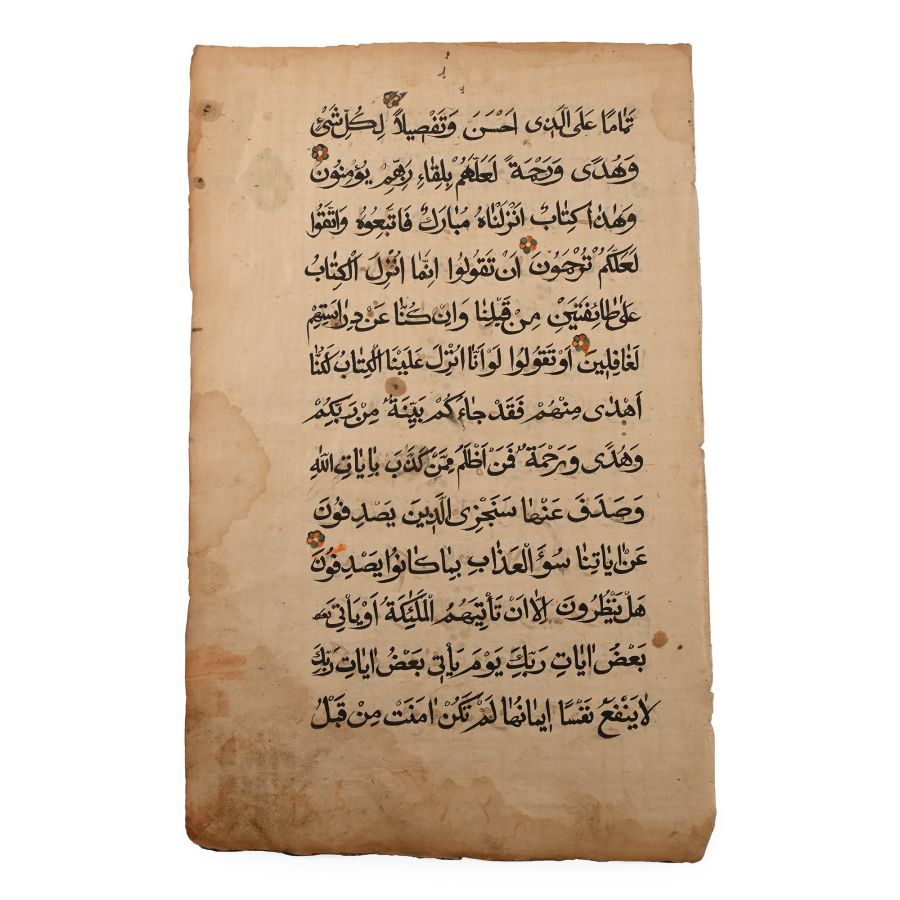 تَمَامًا عَلَى الَّذِى اَحْسَنَ وَتَفْصِيلاً لِكُلِّ شَىْءٍ
وَهُدًى وَرَحْمَةً لَعَلَّهُمْ بِلِقَاءِ رَبِّهِمْ يُؤْمِنُونَ
وَهٰذَا كِتَابٌ اَنْزَلْنَاهُ مُبَارَكٌ فَاتَّبِعُوهُ وَاتَّقُوا
لَعَلَّكُمْ تُرْحَمُونَ اَنْ تَقُولُوا اِنَّمَا اُنْزِلَ الْكِتَابُ
عَلٰى طَائِفَتَيْنِ مِنْ قَبْلِنَا وَاِنْ كُنَّا عَنْ دِرَاسَتِهِمْ
لَغَافِلِينَ اَوْ تَقُولُوا لَوْ اَنَّا اُنْزِلَ عَلَيْنَا الْكِتَابُ لَكُنَّا
اَهْدٰى مِنْهُمْ فَقَدْ جَاءَكُمْ بَيِّنَةٌ مِنْ رَبِّكُمْ
وَهُدًى وَرَحْمَةٌ فَمَنْ اَظْلَمُ مِمَّنْ كَذَّبَ بِاٰيَاتِ اللّٰهِ
وَصَدَفَ عَنْهَا سَنَجْزِى الَّذِينَ يَصْدِفُونَ
عَنْ اٰيَاتِنَا سُوءَ الْعَذَابِ بِمَا كَانُوا يَصْدِفُونَ
هَلْ يَنْظُرُونَ اِلَّا اَنْ تَأْتِيَهُمُ الْمَلٰئِكَةُ اَوْ يَأْتِىَ
بَعْضُ اٰيَاتِ رَبِّكَ يَوْمَ يَأْتِى بَعْضُ اٰيَاتِ رَبِّكَ
لَا يَنْفَعُ نَفْسًا اِيمَانُهَا لَمْ تَكُنْ اٰمَنَتْ مِنْ قَبْلُ